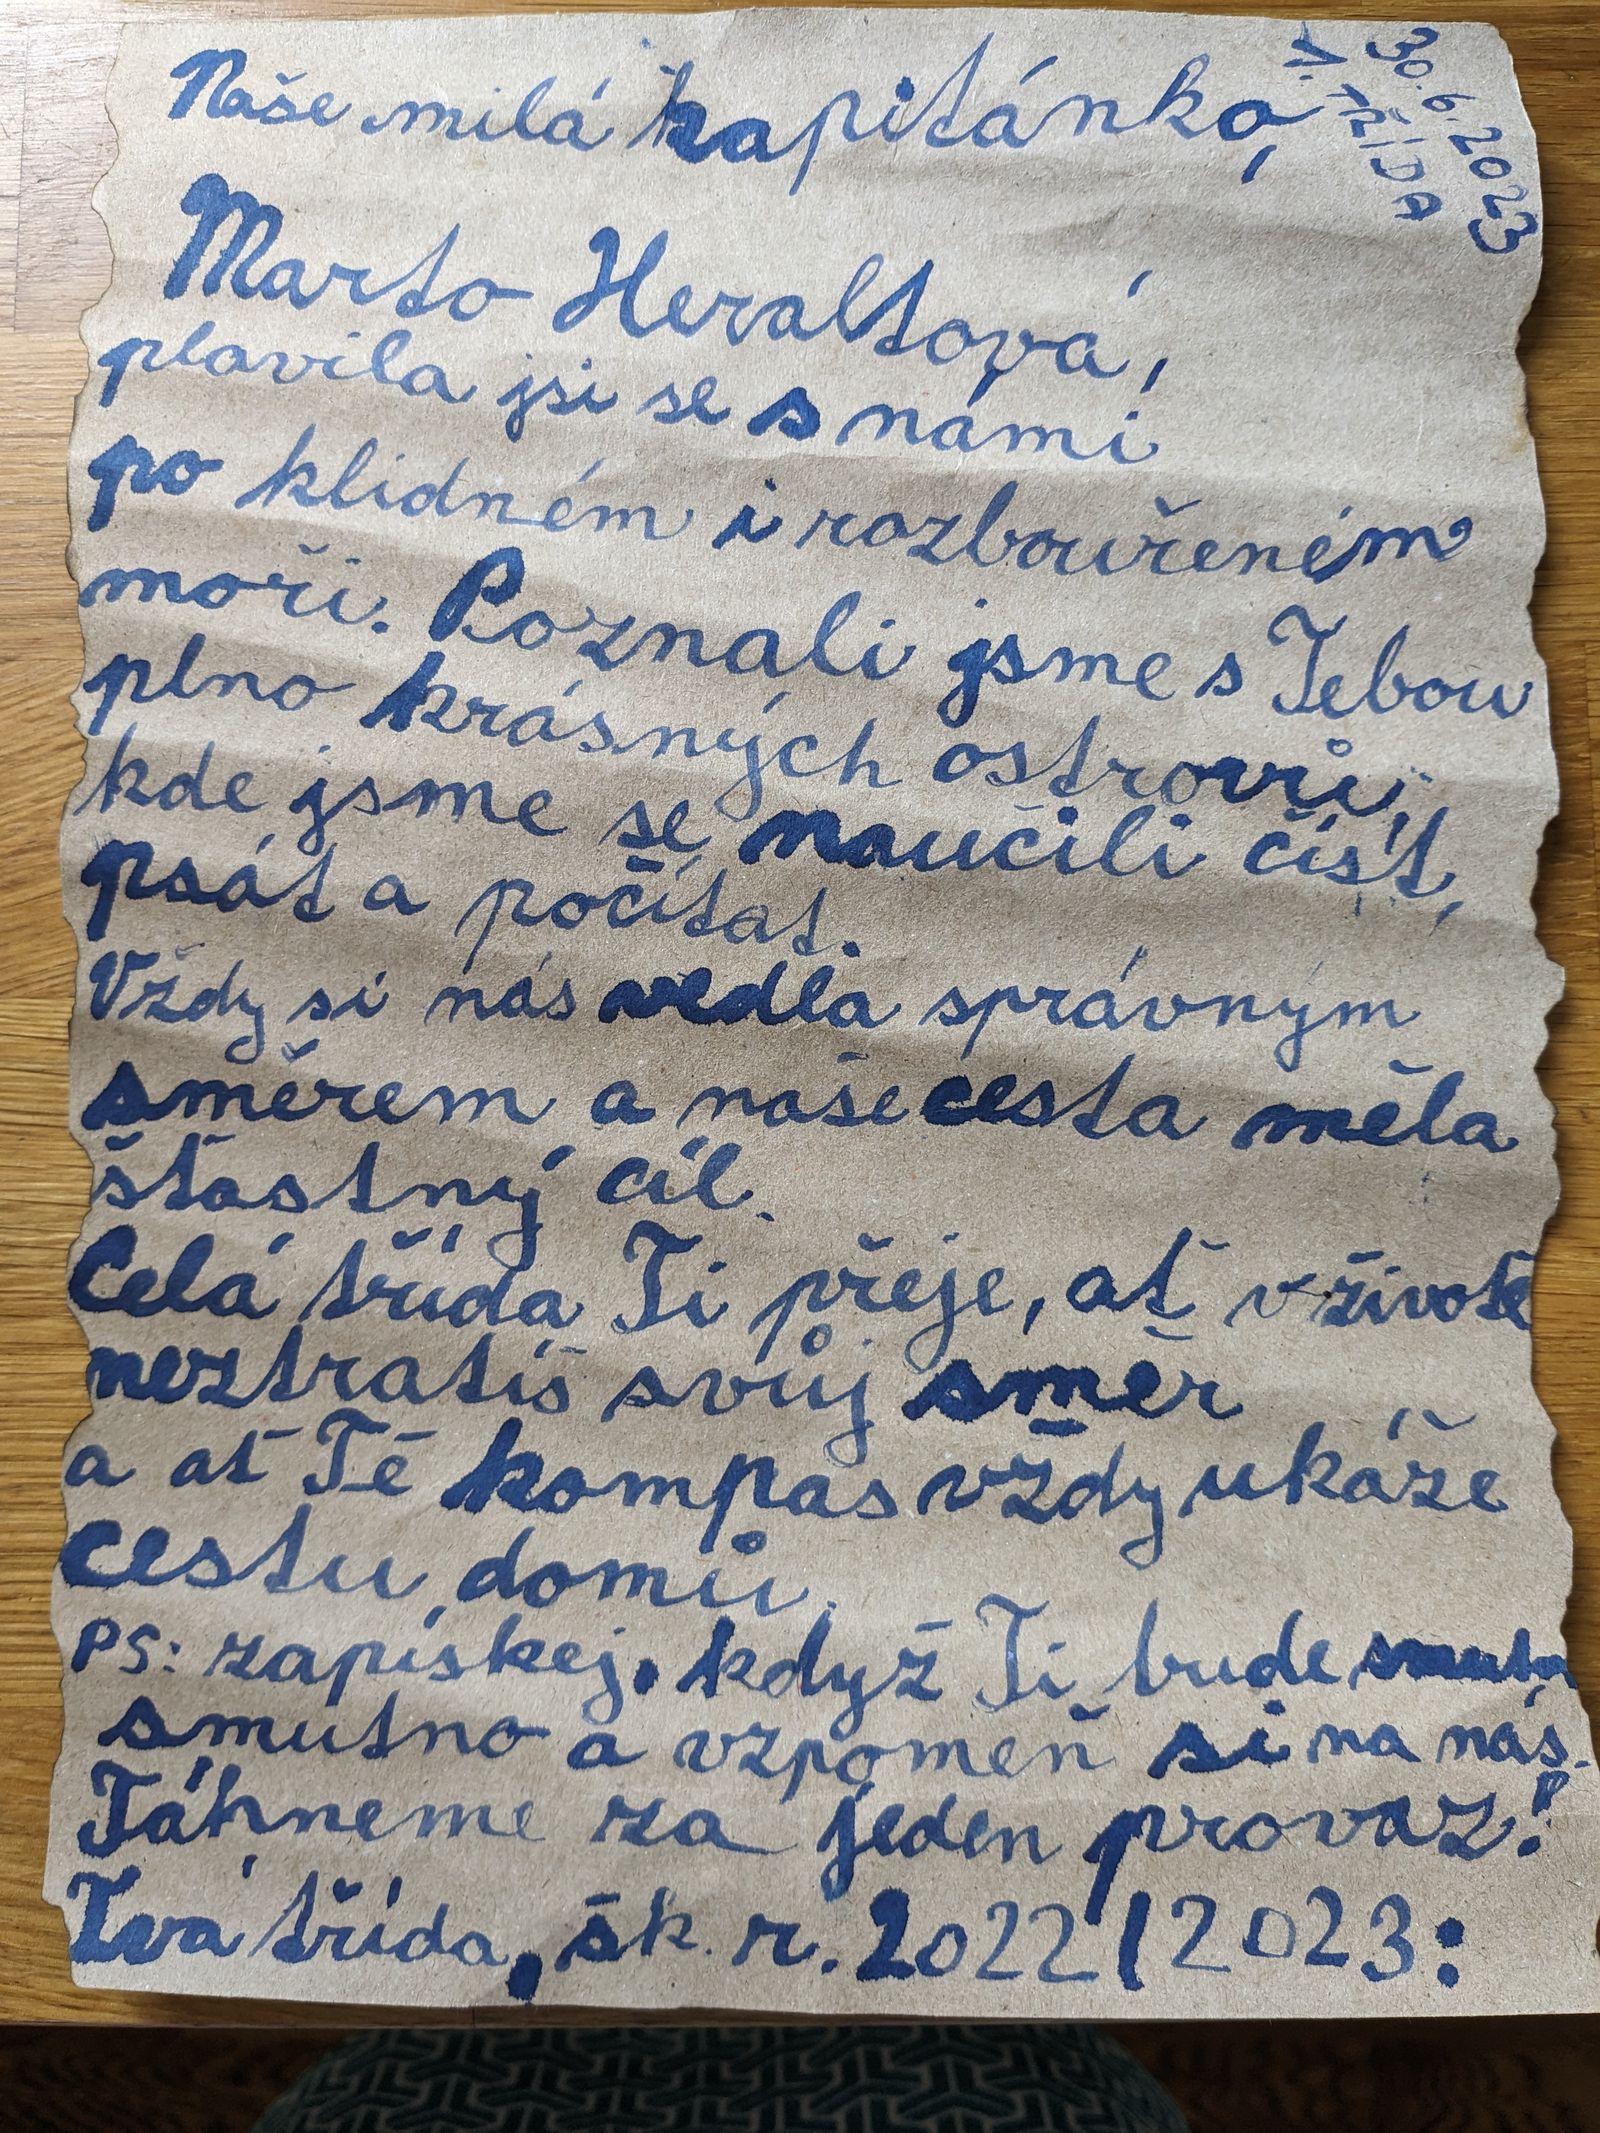 30.6.2023
1. TŘÍDA
Naše milá kapitánko,
Marto Heraltová,
plavila jsi se s námi
po klidném i rozbouřeném
moři. Poznali jsme s Tebou
plno krásných ostrovů,
kde jsme se naučili číst,
psát a počítat.
Vždy si nás vedla správným
směrem a naše cesta měla
šťastný cíl.
Celá třída Ti přeje, ať v životě
neztratíš svůj směr
a ať Tě kompas vždy ukáže
cestu domů.
PS: zapískej, když Ti bude
smutno a vzpomeň si na nás.
Táhneme za jeden provaz!
Tvá třída, šk. r. 2022/2023: